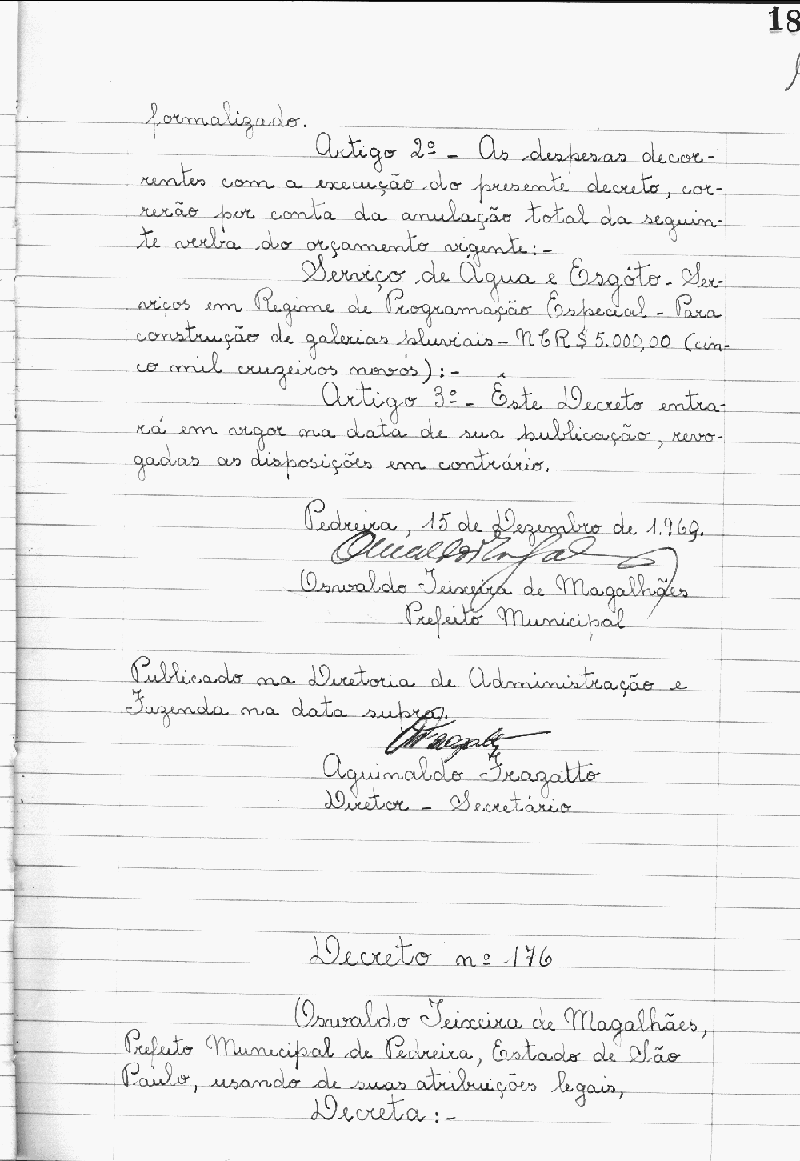 18
formalizado.
Artigo 2º - As despesas decor-
rentes com a execução do presente decreto, cor-
rerão por conta da anulação total da seguin-
te verba do orçamento vigente:-
Serviço de Água e Esgôto - Ser-
viços em Regime de Programação Especial - Para
construção de galerias pluviais - NCR$ 5.000,00 (cin-
co mil cruzeiros novos):-
Artigo 3º - Êste Decreto entra-
rá em vigor na data de sua publicação, revo-
gadas as disposições em contrário.
Pedreira, 15 de Dezembro de 1.969.
Oswaldo Teixeira de Magalhães
Prefeito Municipal
Publicado na Diretoria de Administração e
Fazenda na data supra.
Aguinaldo Fragatto
Diretor - Secretário
Decreto nº 176
Oswaldo Teixeira de Magalhães,
Prefeito Municipal de Pedreira, Estado de São
Paulo, usando de suas atribuições legais,
Decreta:-